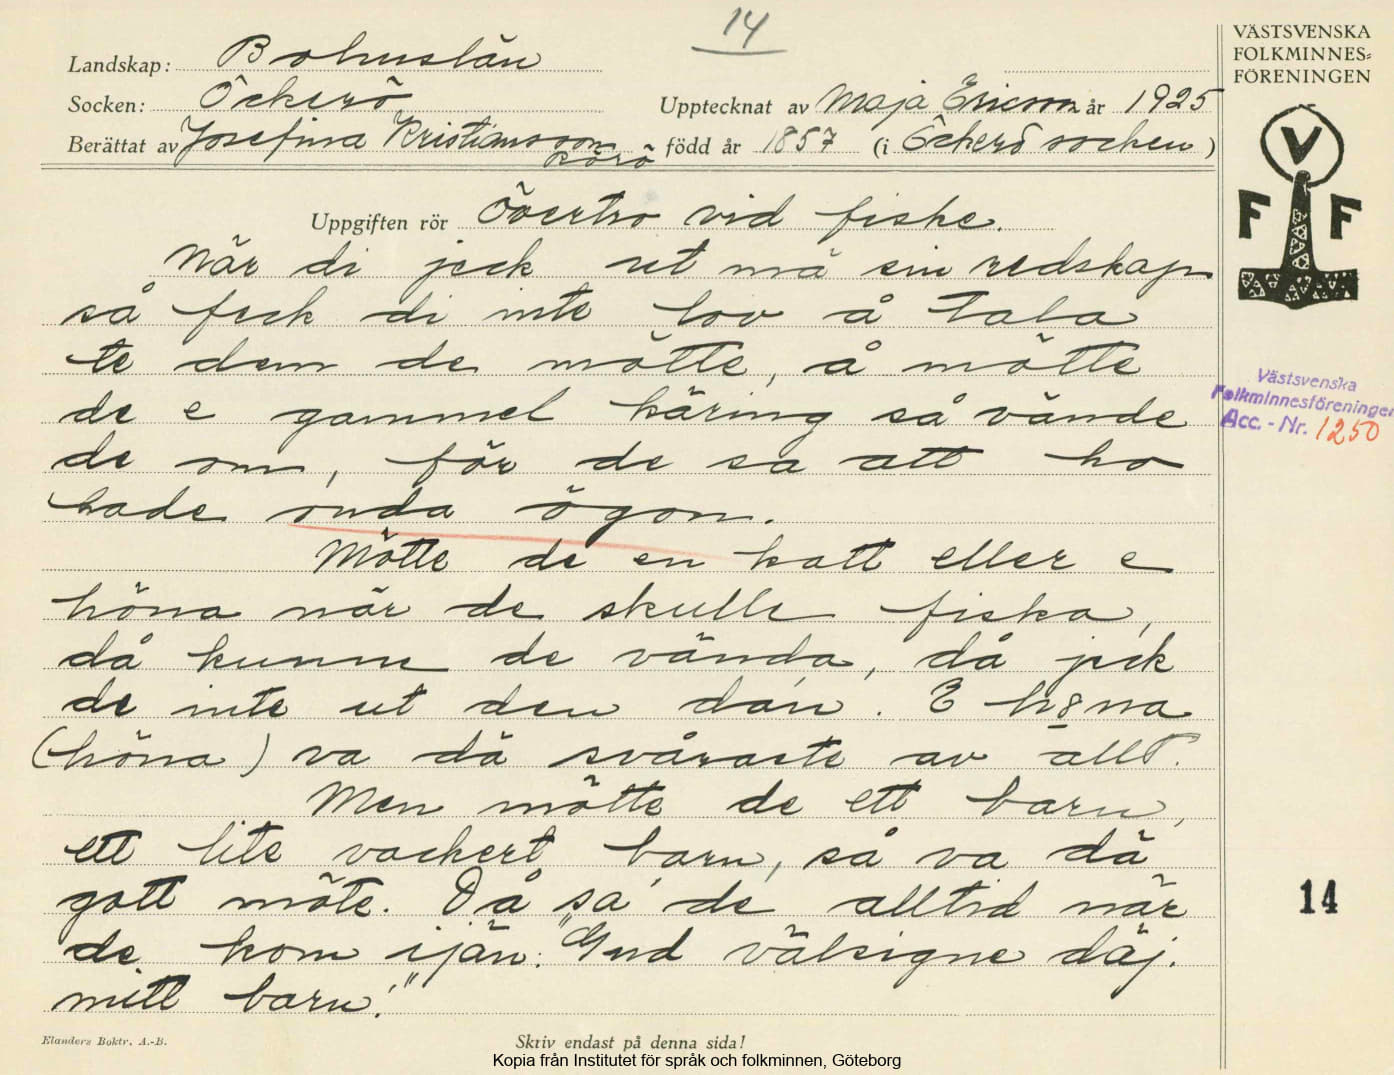 14
Landskap: Bohuslän
Socken: Öckerö
Upptecknat av Maja Ericson år 1925
Berättat av Josefina Kristiansson född år 1857 (i Öckerö socken)
Uppgiften rör Övertro vid fiske.
När di jeck ut mä sin redskap
så feck di inte lov å tala
te dem de mötte, å mötte
de e gammel käring så vände
de om, för de sa att ho
hade onda ögon.
Mötte de en katt eller e
höna när de skulle fiska,
då kunne de vända, då jeck
de inte ut den dan. E h8na
(höna) va dä svåraste av allt.
Men mötte de ett barn,
ett lite vackert barn, så va dä
gott möte. Då sa de alltid när
de kom ijän: "Gud välsigne däj.
mitt barn!"
Elanders Boktr. A.-B.
Skriv endast på denna sida!
Kopia från Institutet för språk och folkminnen, Göteborg
VÄSTSVENSKA
FOLKMINNES=
FÖRENINGEN
V
F F
Västsvenska
Folkminnesföreningen
Acc. - Nr. 1250
14